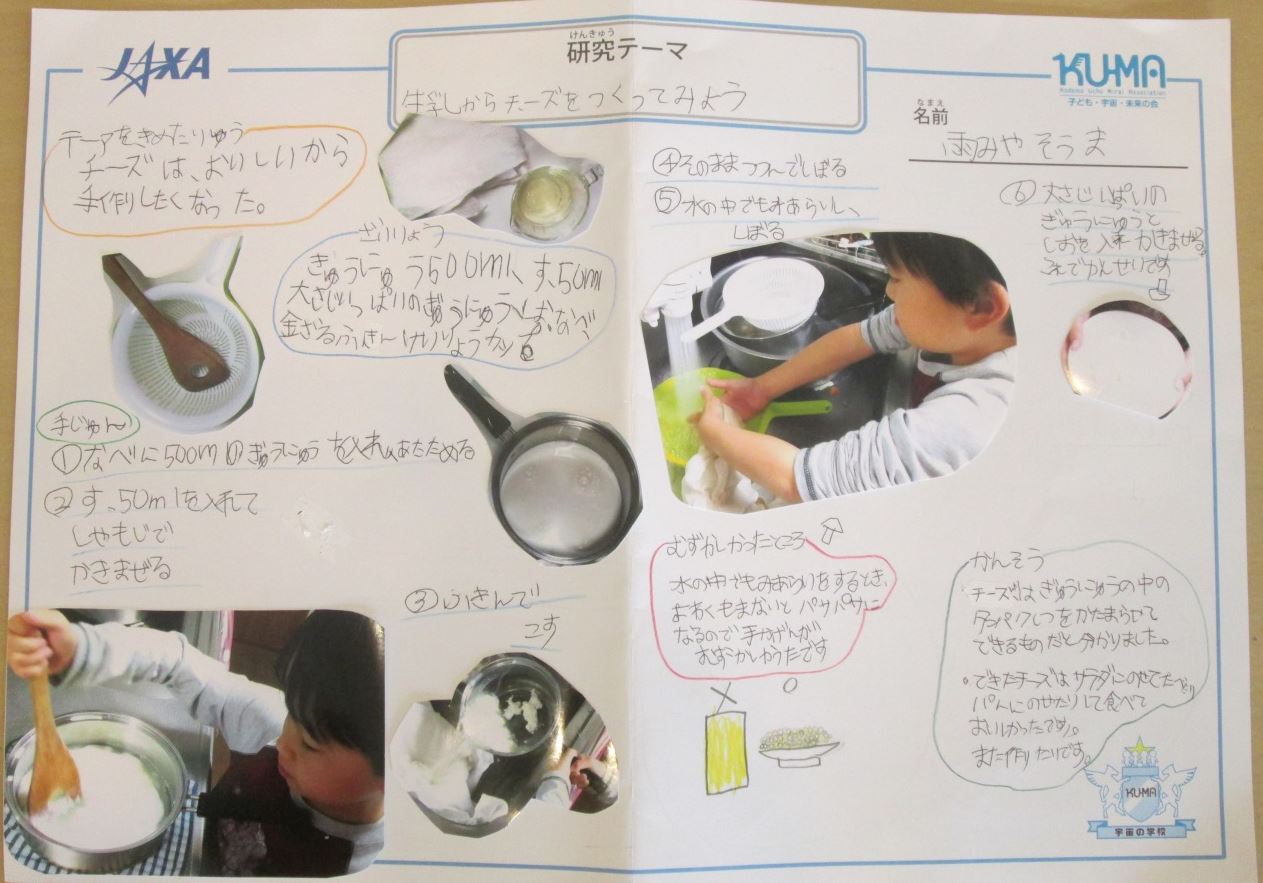 JAXA
けんきゅう
研究テーマ
牛乳しからチーズをつくってみよう
KU-MA
Kodomo Uchu Mirai Association
子ども・宇宙・未来の会
なまえ
名前
雨みや そうま
テーマをきめたりゆう
チーズは、おいしいから
手作りしたくなった。
ざいりょう
ぎゅうにゅう500ml、す、50ml
大さじいっぱいのぎゅうにゅうしお、なべ、
金ざるふきんけいりょうカップ
手じゅん
①なべに500mlのぎゅうにゅうを入れ、あたためる
②す、50mlを入れて
しゃもじで
かきまぜる
③ふきんで
こす
④そのままつつんでしぼる
⑤水の中でもみあらいし、
しぼる
⑥大さじいぱいの
ぎゅうにゅうと
しおを入れかきまぜる。
これでかんせいです
むずかしかったところ
水の中でもみあらいをするとき、
よわくもまないとパサパサに
なるので手かげんが
むずかしかうたです
かんそう
・チーズはぎゅうにゅうの中の
タンパクしつをかたまらせて
できるものだと分かりました。
・できたチーズはサラダにのせてたべたり
パんにのせたりして食べて
おいしかったです。
また作りたいです。
KU-MA
宇宙の学校